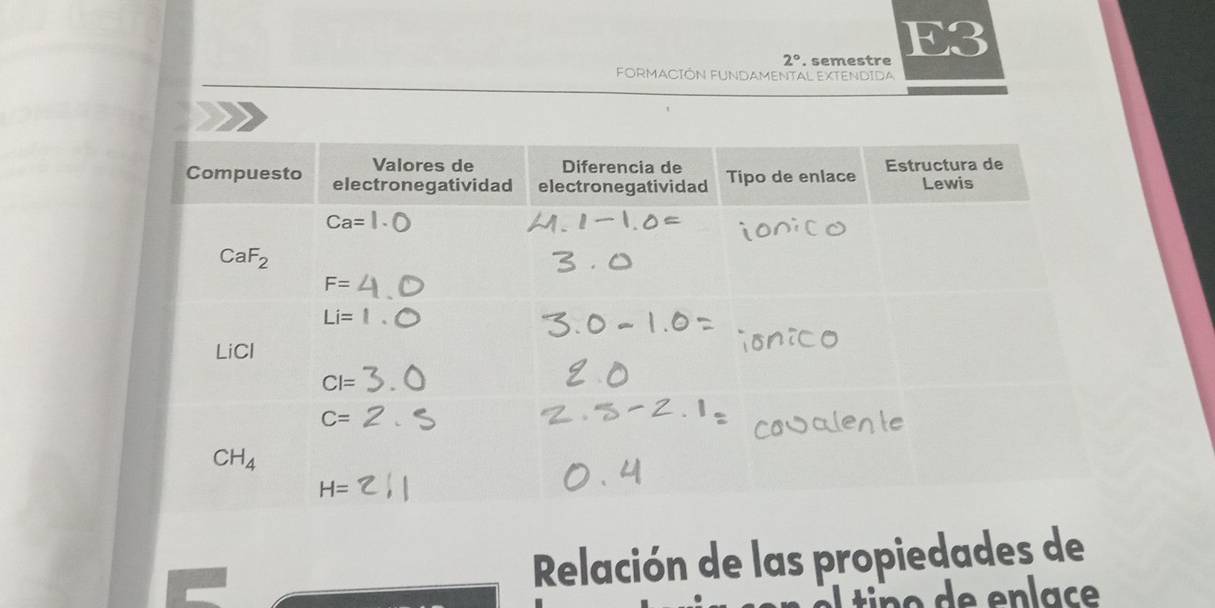 E3
2°. semestre
FORMACIÓN FUNDAMENTAL EXTENDIDA
Compuesto Valores de electronegatividad Diferencia de electronegatividad Tipo de enlace Estructura de Lewis
Ca= 1.0 4.1-1.0= ionico
CaF₂ 3.0
F= 4.0
Li= 1.0 3.0-1.0= ionico
LiCl
Cl= 3.0 2.0
C= 2.5 2.5-2.1= covalente
CH₄
H= 2.1 0.4
Relación de las propiedades de
el tipo de enlace